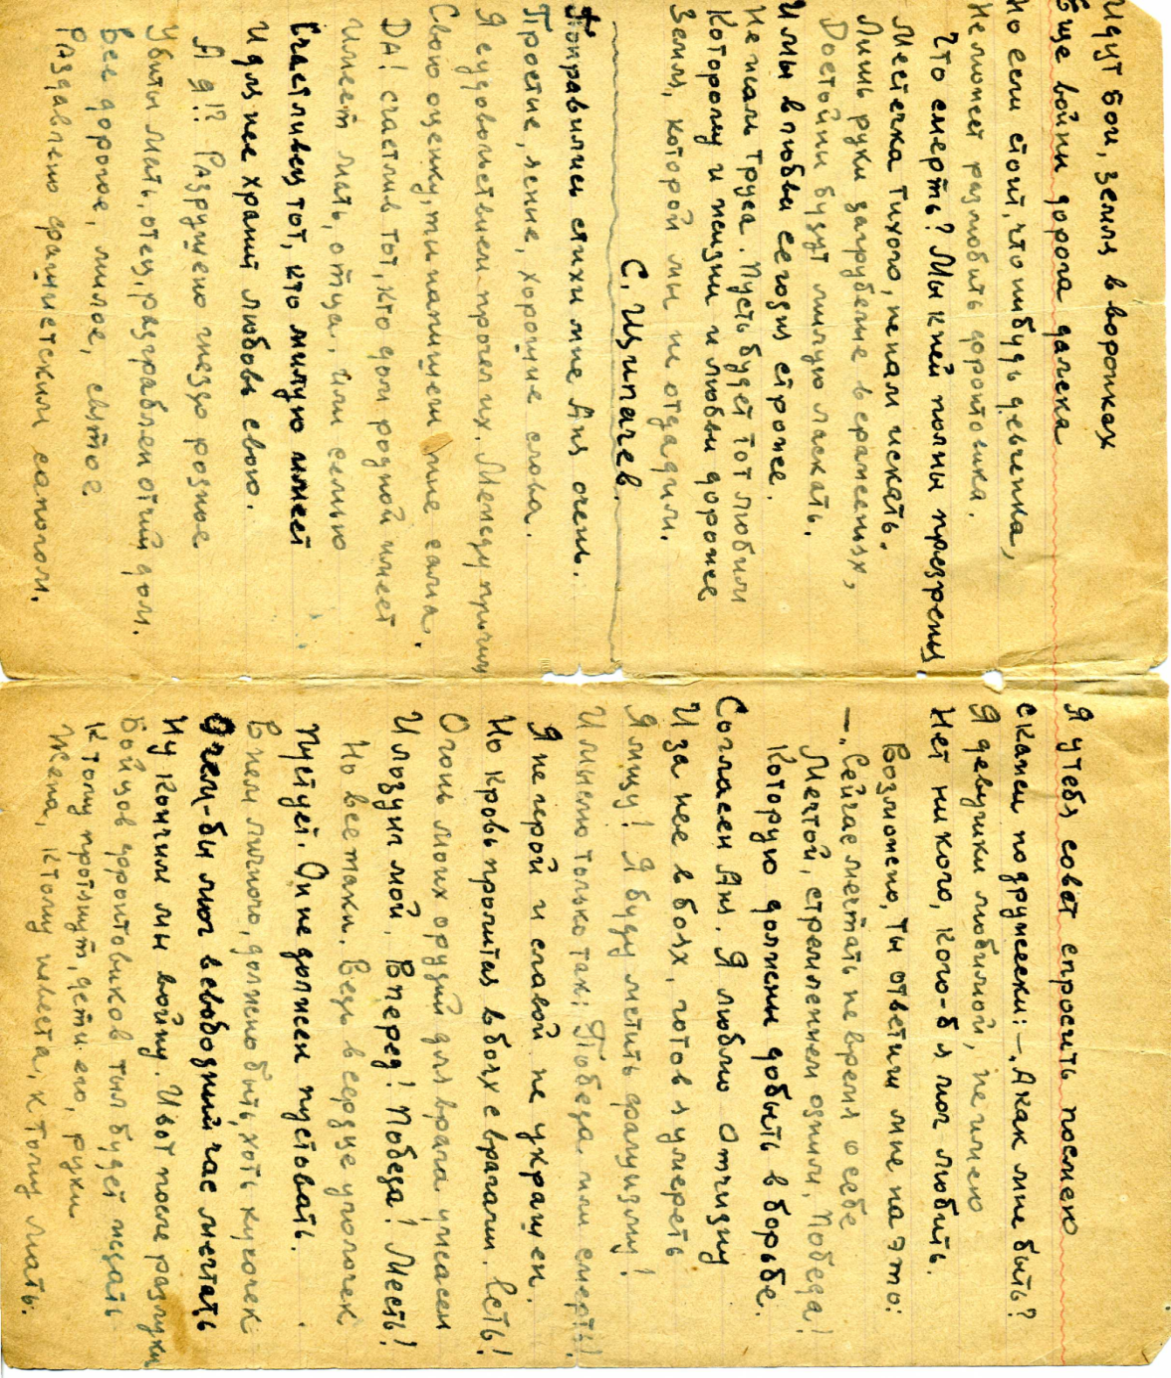 Идут бои, земля в воронках
Еще войны дорога далека
Но если стоит, что нибудь девченка,
Не может разлюбить фронтовика.
Что смерть? Мы к ней полны презренья
Местечка тихого, не нам искать.
Лишь руки загрубелые в сраженьях,
Достойны будут милую ласкать.
И мы в любви сегодня строже.
Не жаль труса. Пусть будет тот любим
Которому и жизни и любви дороже
Земля, которой мы не отдадим.
С. Щипачев.
Понравились стихи мне Аня очень.
Простые, ясные, хорошие слова.
Я с удовольствием прочел их. Между прочим
Свою оценку, ты напишеш мне сама.
Да! счастлив тот, кто дом родной имеет
Имеет мать, отца, или семью
Счастливец тот, кто милую имеет
И для нее хранит любовь свою.
А я!? Разрушено гнездо родное
Убиты мать, отец, разграблен отчий дом.
Все дорогое, милое, святое
Раздавлено фашистским сапогом.
Я у тебя совет спросить посмею
Скажи по дружески: –„А как мне быть?
Я девушки любимой, не имею
Нет никого, кого-б я мог любить.
Возможно, ты ответиш мне на это:
–„Сейчас мечтать не время о себе
Мечтой, стремлением одним, Победа!
Которую должны добыть в борьбе.
Согласен Аня. Я люблю Отчизну
И за нее в боях, готов я умереть
Я мщу! Я буду мстить фашизму!
И мыслю только так: Победа или смерть!
Я не герой и славой не украшен.
Но кровь пролитая в боях с врагами. Есть!
Огонь моих орудий для врага ужасен
И лозунг мой. Вперед! Победа! Месть!
Но все таки. Ведь в сердце уголочек
Пустует. Он не должен пустовать.
В нем личного, должно быть, хоть кусочек
О чем-бы мог в свободный час мечтать
Ну кончим мы войну. И вот после разлуки
Бойцов фронтовиков тыл будет ждать
К тому протянут, дети его, руки
Жена, к тому невеста, к тому мать.